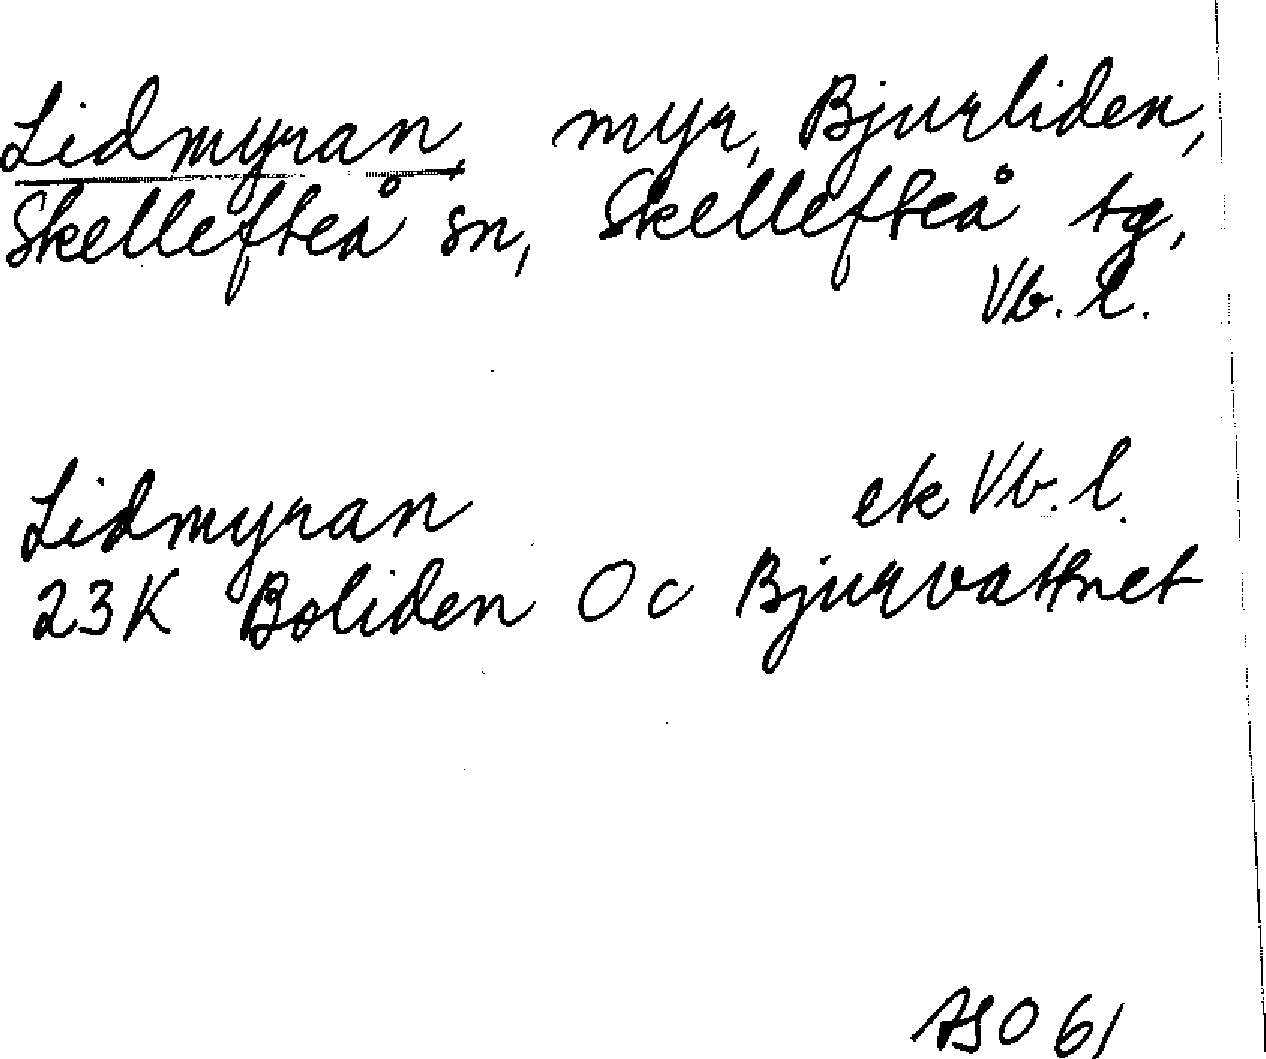 Lidmyran, myr, Bjurliden,
Skellefteå sn, Skellefteå tg,
Vb. l.
Lidmyran ek Vb. l.
23K Boliden Oc Bjurvattnet
ASO 61